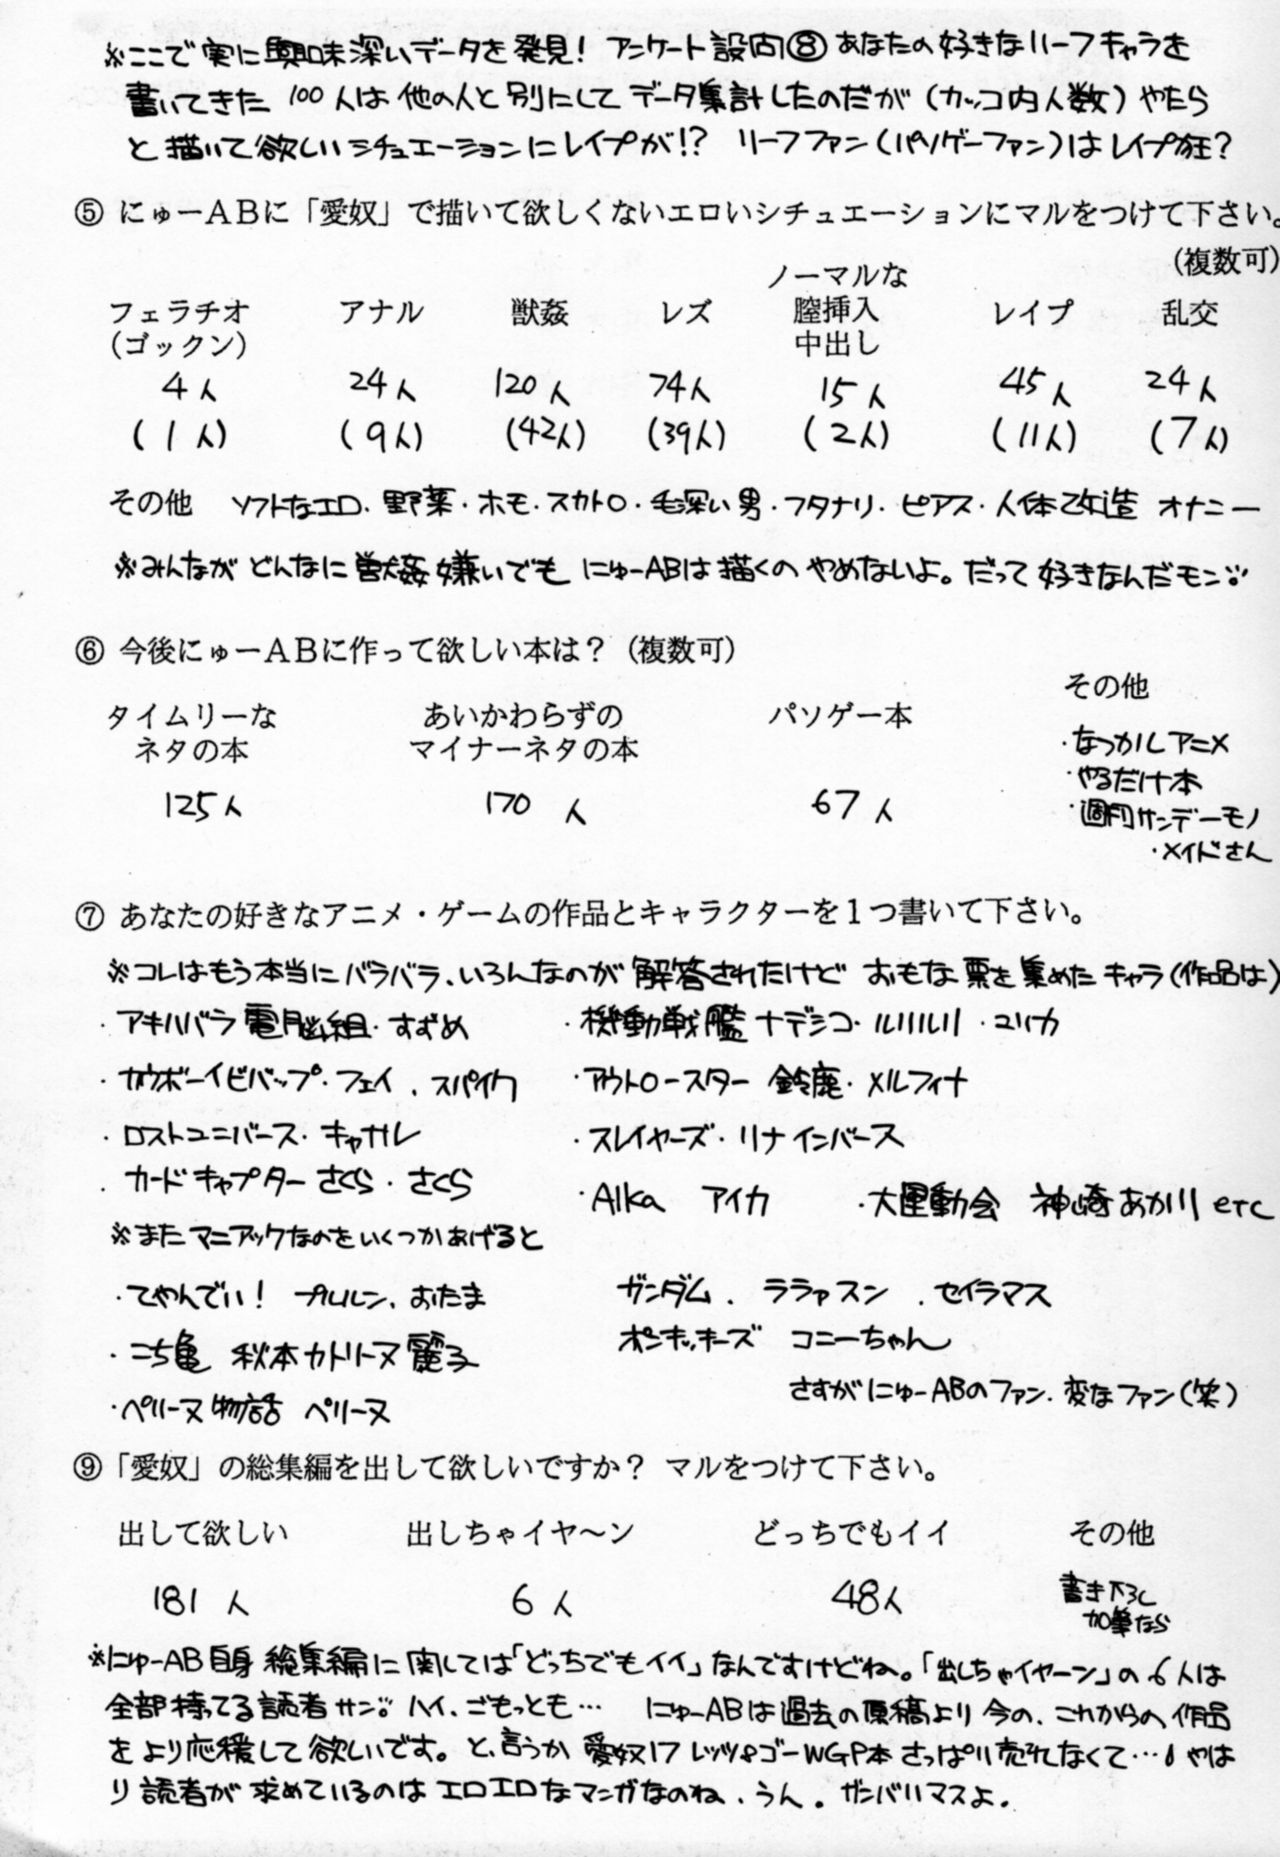 ※ここで実に興味深いデータを発見! アンケート設問⑧ あなたの好きなリーフキャラを
書いてきた 100人は他の人と別にしてデータ集計したのだが(カッコ内人数)やたら
と描いて欲しいシチュエーションにレイプが!? リーフファン(パソゲーファン)はレイプ狂?
⑤ にゅーＡＢに「愛奴」で描いて欲しくないエロいシチュエーションにマルをつけて下さい。
(複数可)
フェラチオ
(ゴックン)
アナル
獣姦
レズ
ノーマルな
膣挿入
中出し
レイプ
乱交
4人 24人 120人 74人 15人 45人 24人
(1人) (9人) (42人) (39人) (2人) (11人) (7人)
その他 ソフトなエロ・野菜・ホモ・スカトロ・毛深い男・フタナリ・ピアス・人体改造 オナニー
※みんながどんなに獣姦嫌いでも にゅーABは描くのやめないよ。だって好きなんだモン
⑥ 今後にゅーＡＢに作って欲しい本は？(複数可)
タイムリーな
ネタの本
あいかわらずの
マイナーネタの本
パソゲー本
その他
125人 170人 67人
・なつかしアニメ
・やるだけ本
・週刊サンデーモノ
・メイドさん
⑦ あなたの好きなアニメ・ゲームの作品とキャラクターを１つ書いて下さい。
※コレはもう本当にバラバラ、いろんなのが解答されたけど おもな票を集めたキャラ(作品は)
・アキハバラ電脳組・すずめ ・機動戦艦ナデシコ・ルリルリ・ユリカ
・カウボーイビバップ・フェイ、スパイク ・アウトロースター 鈴鹿・メルフィナ
・ロストユニバース・キャナル ・スレイヤーズ・リナ インバース
・カードキャプターさくら・さくら ・AIka アイカ ・大運動会 神崎あかり etc
※またマニアックなのをいくつかあげると
・てやんでい! プルルン、おたま ガンダム、ララァスン、セイラマス
・こち亀 秋本カトリーヌ麗子 ポンキッキーズ コニーちゃん
・ペリーヌ物語 ペリーヌ さすがにゅーABのファン、変なファン(笑)
⑨「愛奴」の総集編を出して欲しいですか？ マルをつけて下さい。
出して欲しい 出しちゃイヤ～ン どっちでもイイ その他
181人 6人 48人
書き下ろし
加筆なら
※にゅーAB自身 総集編に関しては「どっちでもイイ」なんですけどね。「出しちゃイヤーン」の6人は
全部持ってる読者サン。ハイ、ごもっとも… にゅーABは過去の原稿より今の、これからの作品
をより応援して欲しいです。と、言うか 愛奴17 レッツ&ゴーWGP本 さっぱり売れなくて…やは
り読者が求めているのはエロエロなマンガなのね、うん。ガンバリマスよ。